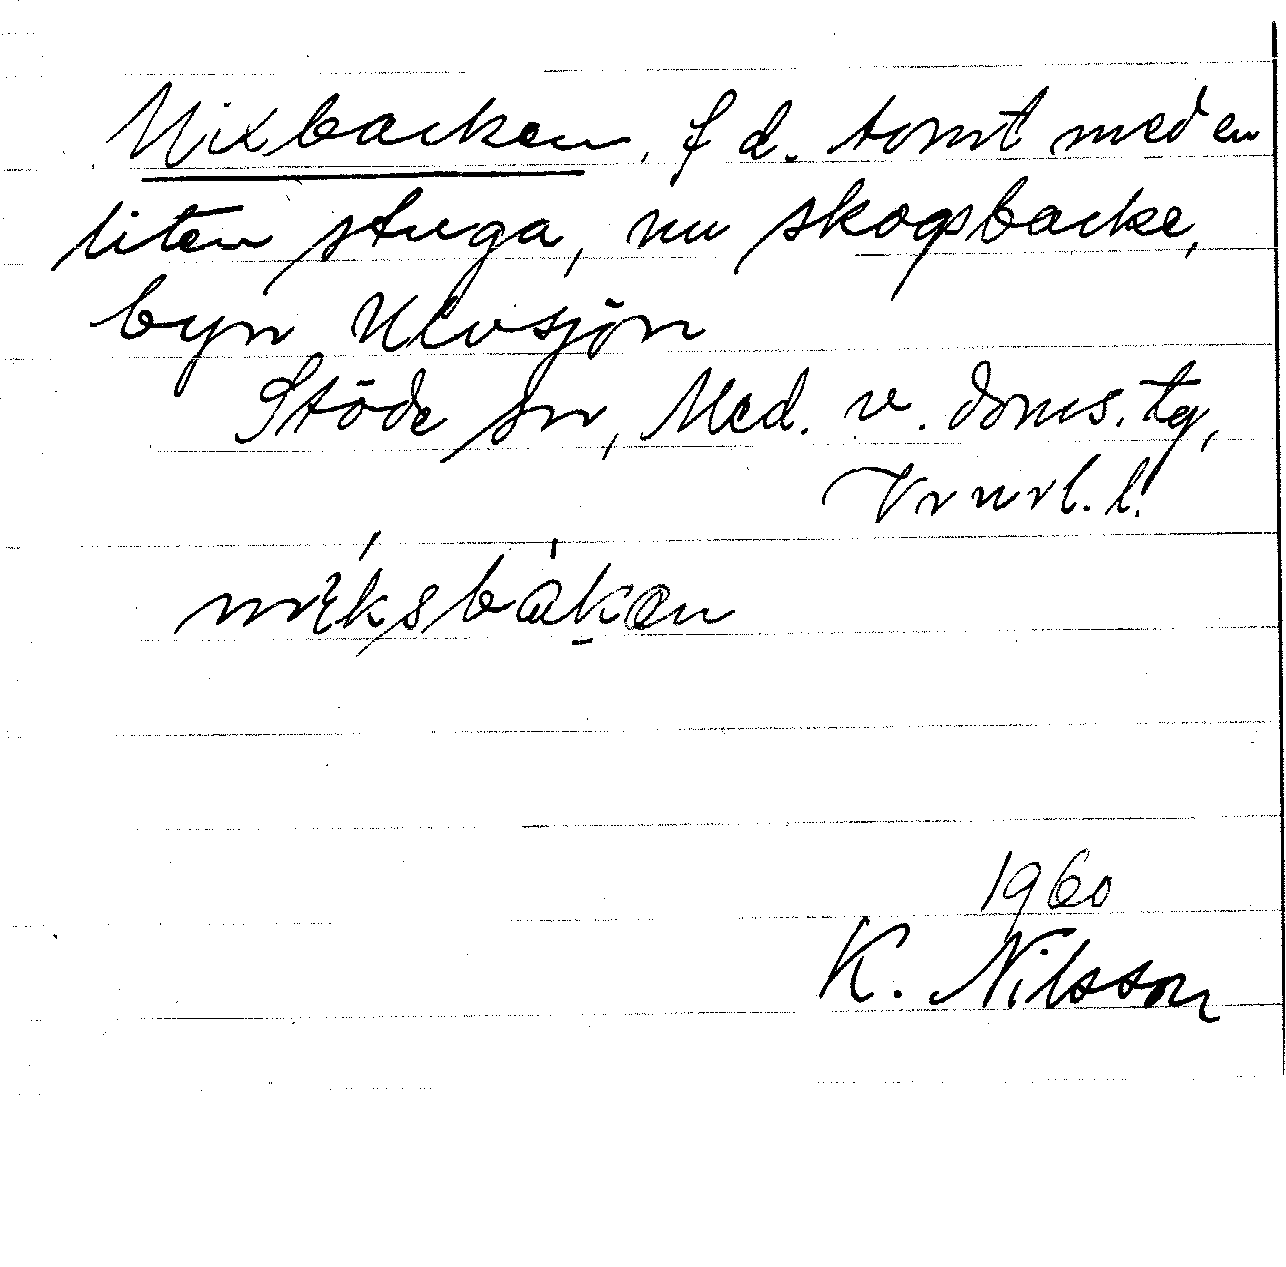 Mixbacken, f d. tomt med en
liten stuga, nu skogsbacke,
byn Ulvsjön
Stöde sn, Med. v. doms. tg,
Vrnrl. l.
1960
K. Nilsson